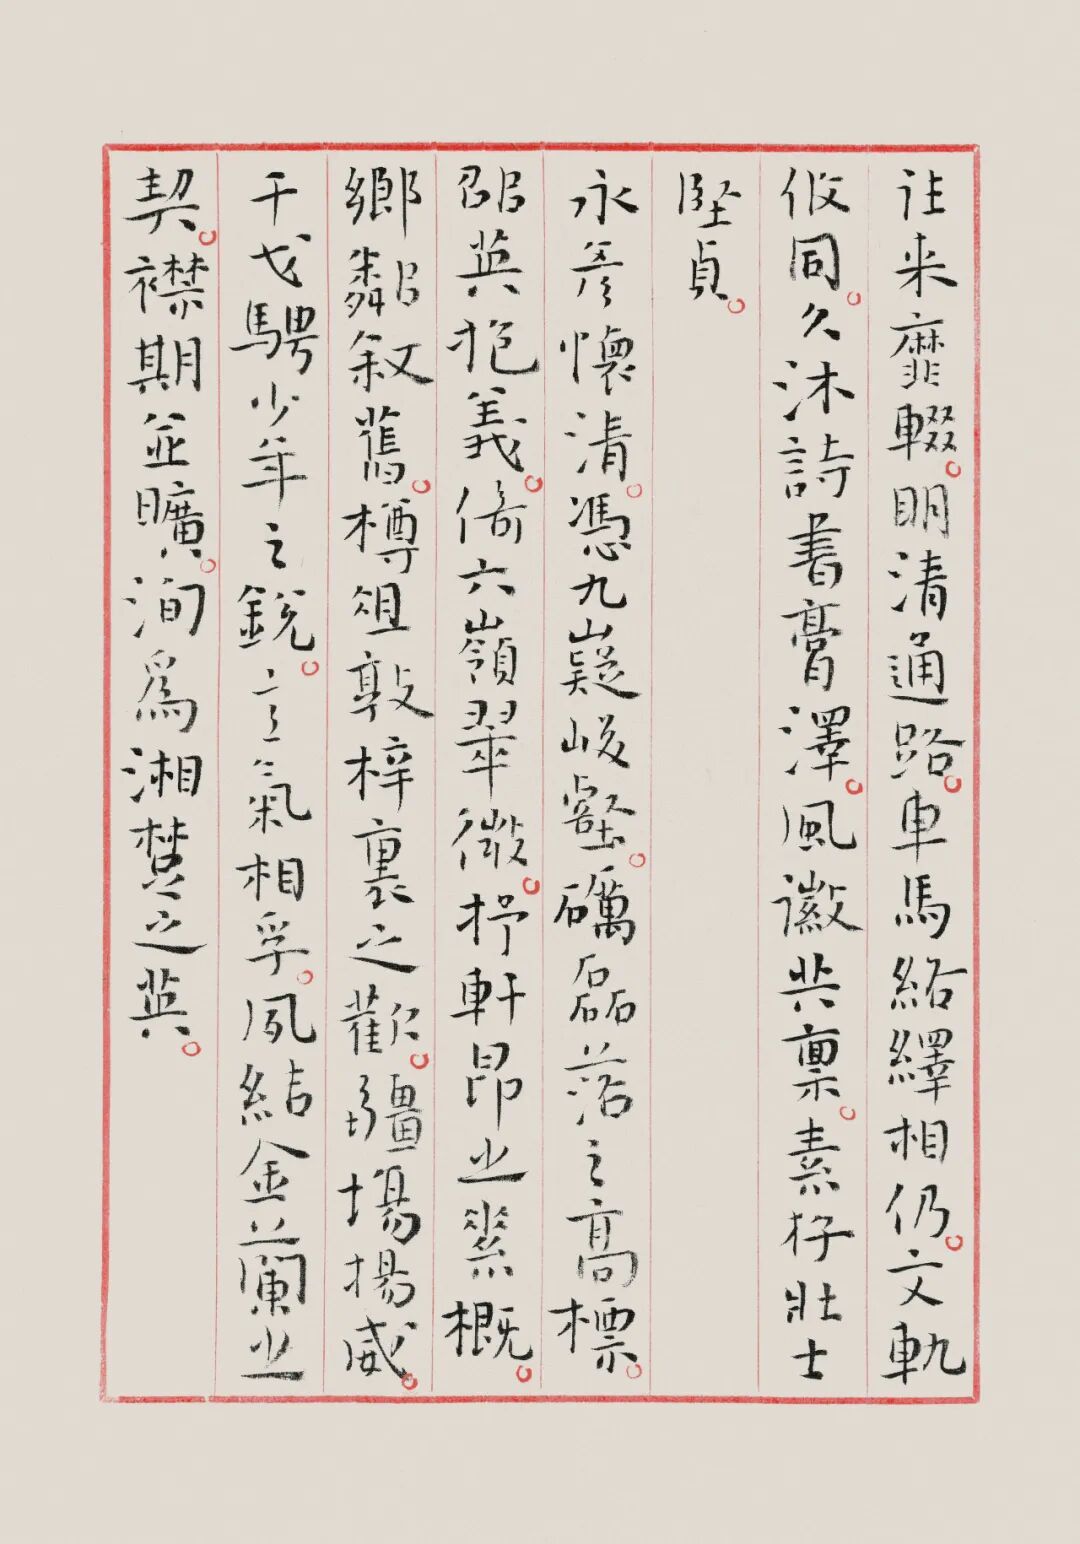 往来靡輟。明清通路。車馬絡繹相仍。文軌
攸同。久沐詩書膏澤。風徽共禀。素存壯士
堅貞。
永彥懷清。憑九嶷峻壑。礪磊落之高標。
邵英抱義。倚六嶺翠微。抒軒昂之素概。
鄉鄰叙舊。樽俎敦梓裏之歡。疆場揚威。
干戈騁少年之銳。意氣相孚。夙結金蘭之
契。襟期並曠。洵爲湘楚之英。